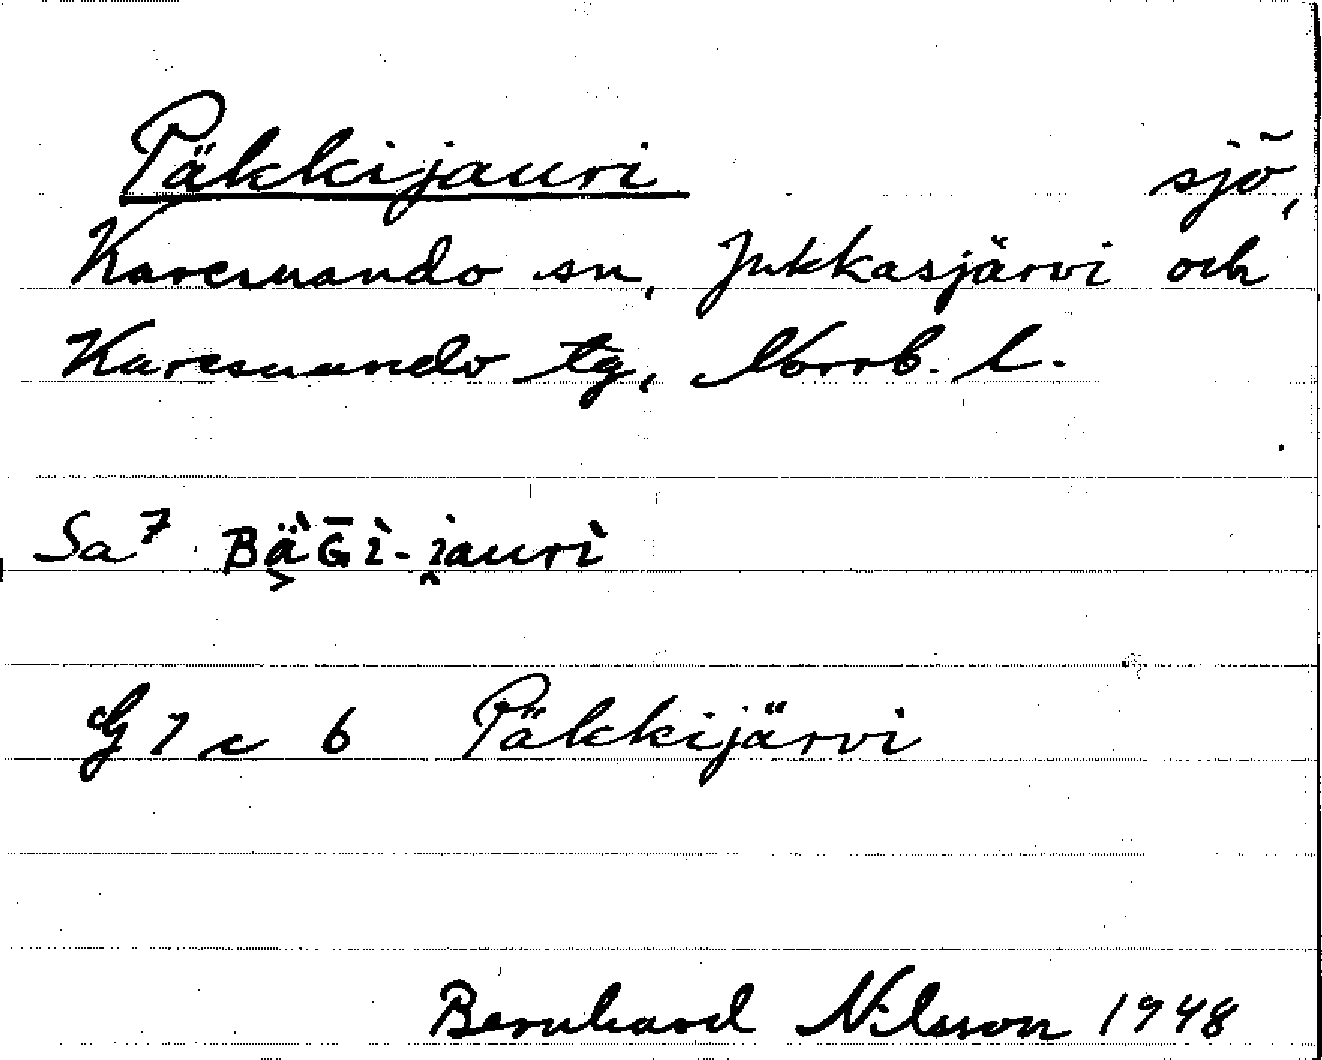 Päkkijauri sjö,
Karesuando sn, Jukkasjärvi och
Karesuando tg, Norrb. l.
Sa 7 Bä̀Ḡì-i̯aurì
G 7 c 6 Päkkijärvi
Bernhard Nilsson 1948